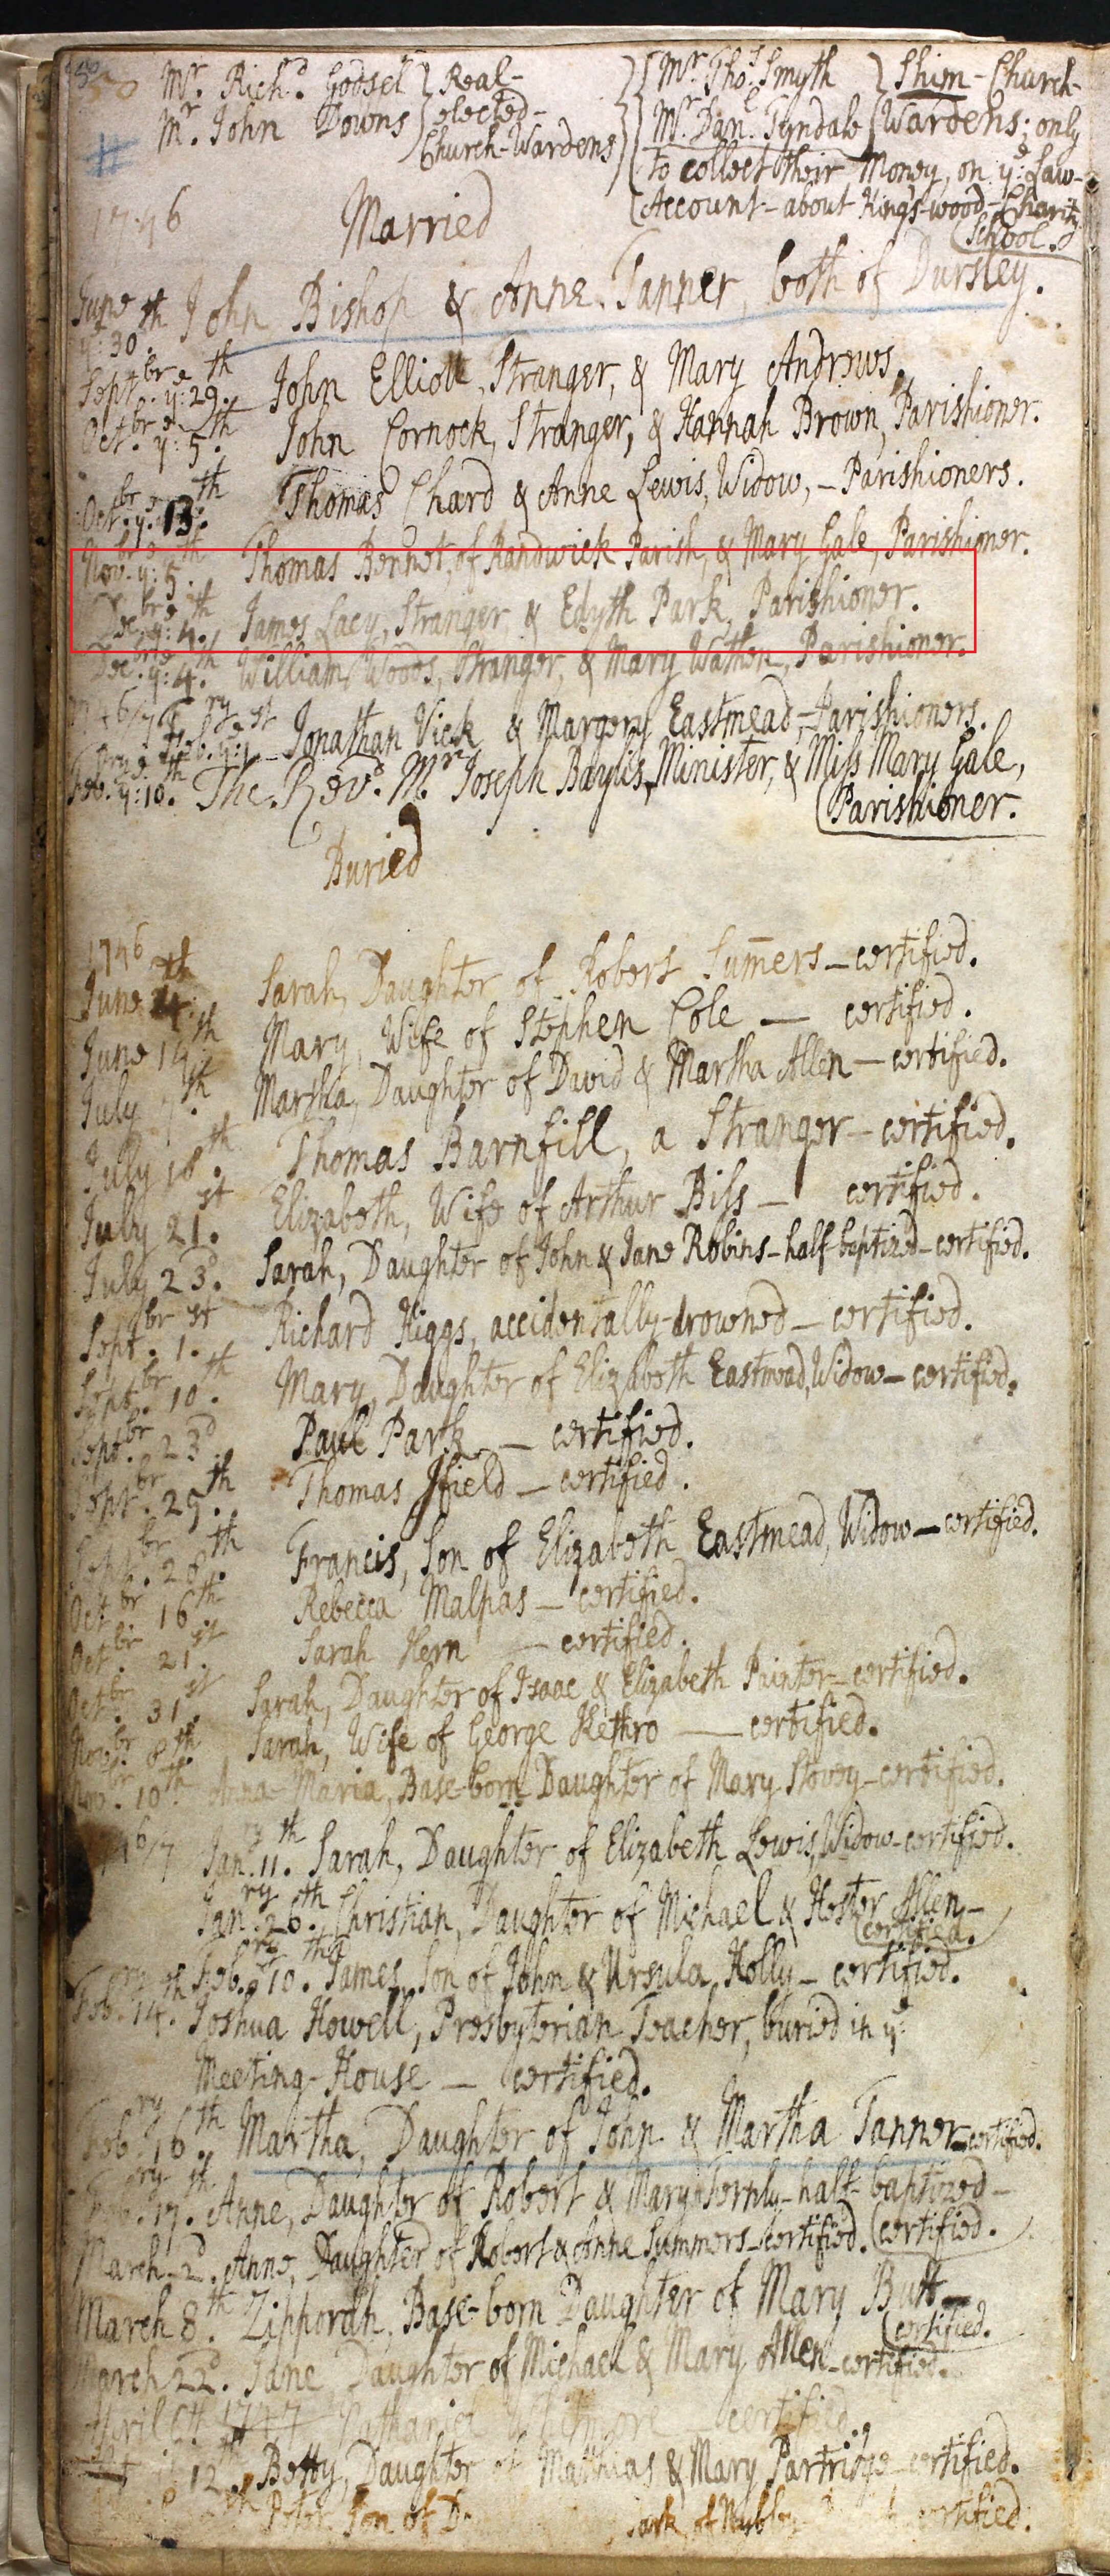 Mr. Richd. Godsel } Real-
Mr. John Downs } elected-
Church-Wardens
Mr. Thos. Smyth } Shim-Church-
Mr. Danl. Tyndale } Wardens; only
to collect their Money, on ye: Law-
Account-about King's-wood-Charity
School.
1746
Married
June ye: 30th. John Bishop & Anne Tanner, both of Dursley.
Septbr. ye: 29th. John Elliott, Stranger, & Mary Andrews.
Octbr. ye: 5th. John Cornock, Stranger, & Hannah Brown, Parishioner.
Octbr. ye: 13th. Thomas Chard & Anne Lewis, Widow, - Parishioners.
Novbr. ye: 5th. Thomas Bennet, of Randwick Parish, & Mary Gale, Parishioner.
Decbr. ye: 4th. James Lacy, Stranger, & Edyth Park, Parishioner.
Decbr. ye: 4th. William Woods, Stranger, & Mary Wathen, Parishioner.
1746/7 Febry. ye: 1st Jonathan Vick & Margery Eastmead, - Parishioners.
Febry. ye: 10th. The Revd. Mr. Joseph Baylis, Minister, & Miss Mary Gale,
Parishioner.
Buried
1746
June 4th. Sarah, Daughter of Robert Sum̄ers - certified.
June 14th Mary, Wife of Stephen Cole — certified.
July 7th. Martha, Daughter of David & Martha Allen - certified.
July 18th. Thomas Barnfill, a Stranger - certified.
July 21st. Elizabeth, Wife of Arthur Biss - certified.
July 23d. Sarah, Daughter of John & Jane Robins - half-baptized - certified.
Septbr. 1st. Richard Higgs, accidentally-drowned - certified.
Septbr. 10th. Mary, Daughter of Elizabeth Eastmead, Widow - certified.
Septbr. 23d. Paul Park - certified.
Septbr. 29th. Thomas Ifield - certified.
Septbr. 28th. Francis, Son of Elizabeth Eastmead, Widow - certified.
Octbr 16th Rebecca Malpas - certified.
Octbr. 21st. Sarah Hern - certified.
Octbr. 31st. Sarah, Daughter of Isaac & Elizabeth Painter - certified.
Novbr. 8th. Sarah, Wife of George Hethro — certified.
Novbr. 10th. Anna-Maria, Base-born Daughter of Mary Stovey - certified.
1746/7 Janry. 11th. Sarah, Daughter of Elizabeth Lewis, Widow - certified.
Janry. 26th. Christian, Daughter of Michael & Hester Allen -
certified.
Febry. 10th. James, Son of John & Ursula Holly - certified.
Febry. 14th. Joshua Howell, Presbyterian Teacher, buried in ye:
Meeting-House - certified.
Febry. 16th. Martha, Daughter of John & Martha Tanner - certified.
Febry. 17th. Anne, Daughter of Robert & Mary - half-baptized -
certified.
March 2d. Anne, Daughter of Robert & Anne Summers - certified.
March 8th. Zipporah, Base-born Daughter of Mary Butt -
certified.
March 22d. Jane Daughter of Michael & Mary Allen - certified.
April 1747 Nathaniel certified.
12th. Betty, Daughter of Matthias & Mary Partridge - certified.
Peter Son of certified.